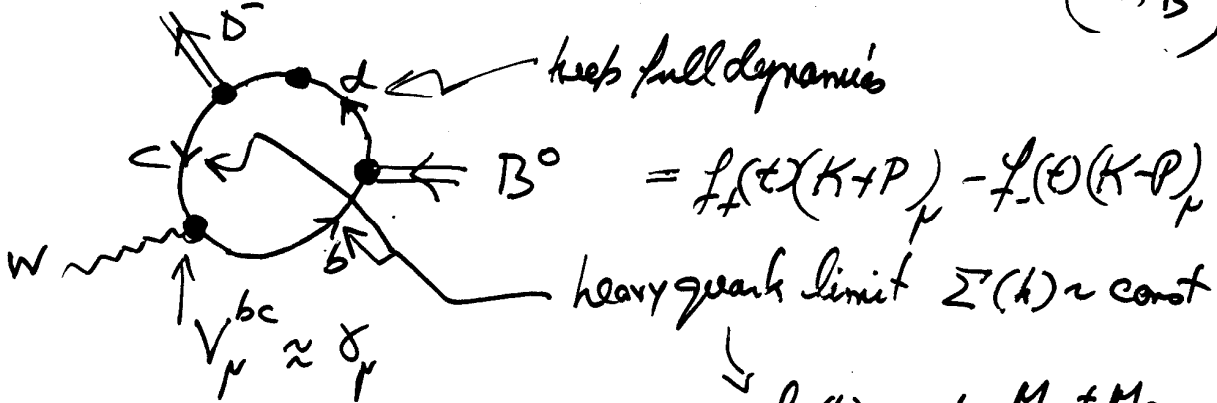 D⁻
B
d
keep full dynamics
c
B⁰
= f₊(t)(K+P)_μ - f₋(t)(K-P)_μ
W
b
heavy quark limit Σ(k) ~ const
V_μ^{bc} ≈ γ_μ